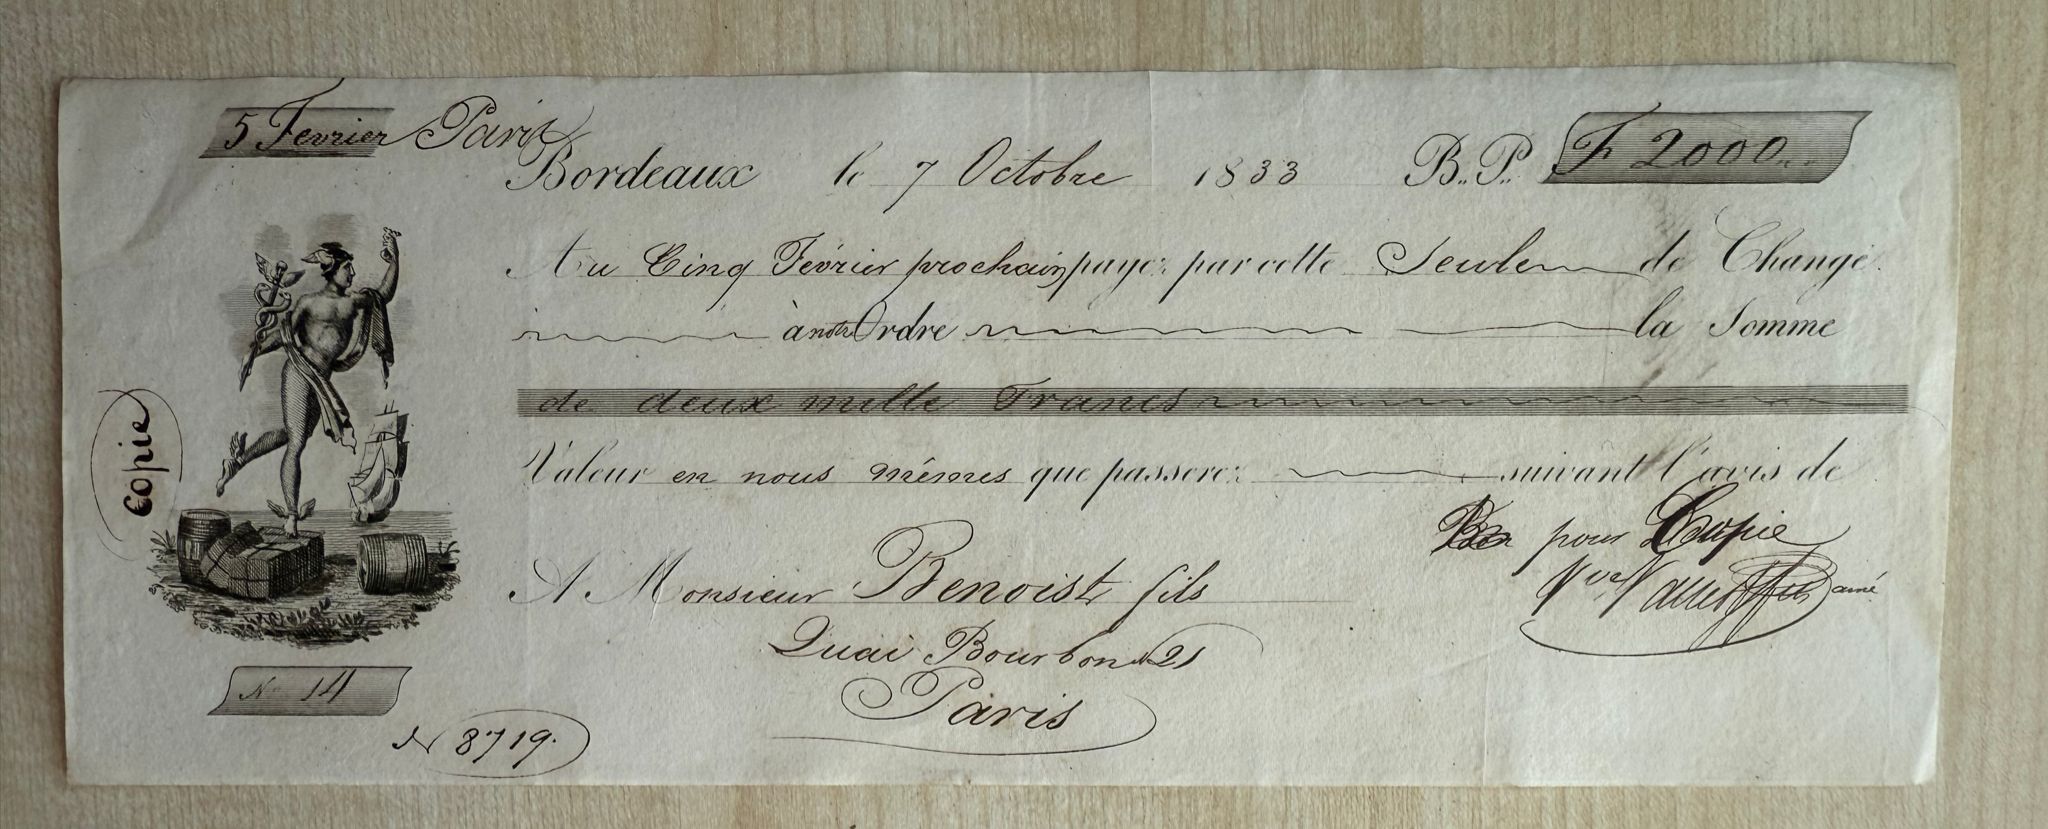 5 Fevrier Paris
Bordeaux le 7 Octobre 1833 B..P.. F 2000
Au Cinq Février prochain payez par cette Seule de Change
à notre Ordre la Somme
de deux mille Francs
Valeur en nous mêmes que passerez suivant l'avis de
pour Copie
Vve fils ainé
A Monsieur Benoist fils
Quai Bourbon 21
Paris
Copie
No 14
N 8719.